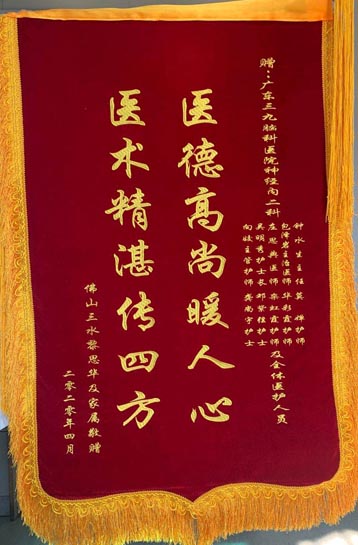 赠：广东三九脑科医院神经内二科
钟水生主任 莫 婵护师
包泽岩主治医师 华彩霞护师
左思典医师 栾虹霞护师
吴明秀护士长 邓紫桂护士
向婕主管护师 龚尚宇护士
及全体医护人员
医德高尚暖人心
医术精湛传四方
佛山三水黎思华及家属敬赠
二零二零年四月